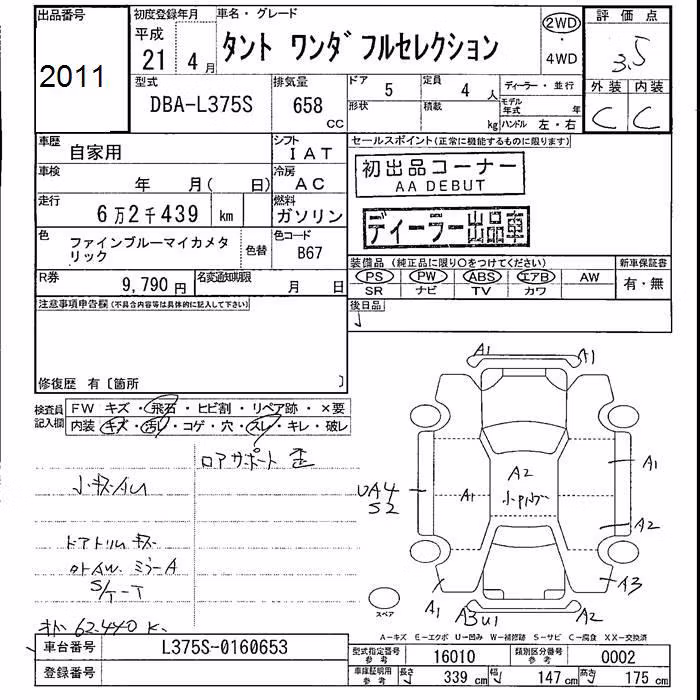 出品番号 2011
初度登録年月 平成 21 4月
車名・グレード タント ワンダフルセレクション
2WD ・ 4WD
評価点 3.5
外装 内装
C C
型式 DBA-L375S
排気量 658 CC
ドア 5 定員 4 人
形状 積載 kg
ディーラー・並行
モデル年式 年
ハンドル 左・右
車歴 自家用
シフト IAT
車検 年 月( 日)
冷房 AC
走行 6万2千439 km
燃料 ガソリン
色 ファインブルーマイカメタリック
色替
色コード B67
R券 9,790円
名変通知期限 月 日
セールスポイント(正常に機能するものに限ります)
初出品コーナー
AA DEBUT
ディーラー出品車
装備品(純正品に限り○をつけてください) 新車保証書
PS PW ABS エアB AW 有・無
SR ナビ TV カワ
後日品
注意事項申告欄(不具合内容等は具体的に記入して下さい)
修復歴 有〔箇所 〕
検査員記入欄
FW キズ・飛石・ヒビ割・リペア跡・×要
内装・キズ・汚レ・コゲ・穴・スレ・キレ・破レ
ロアサポート歪
小キズAU
ドアトリムキズ
タトAW ミラーA
S/T-T
オト 62,440 K
A1 A1
A1
A2
UA4
S2
A1
A2
A1
A3U1
A2
A3
スペア
A-キズ E-エクボ U-凹み W-補修跡 S-サビ C-腐食 XX-交換済
車台番号 L375S-0160653
登録番号
型式指定番号 参考 16010
類別区分番号 参考 0002
車庫証明用 参考 長さ 339 cm 幅 147 cm 高さ 175 cm